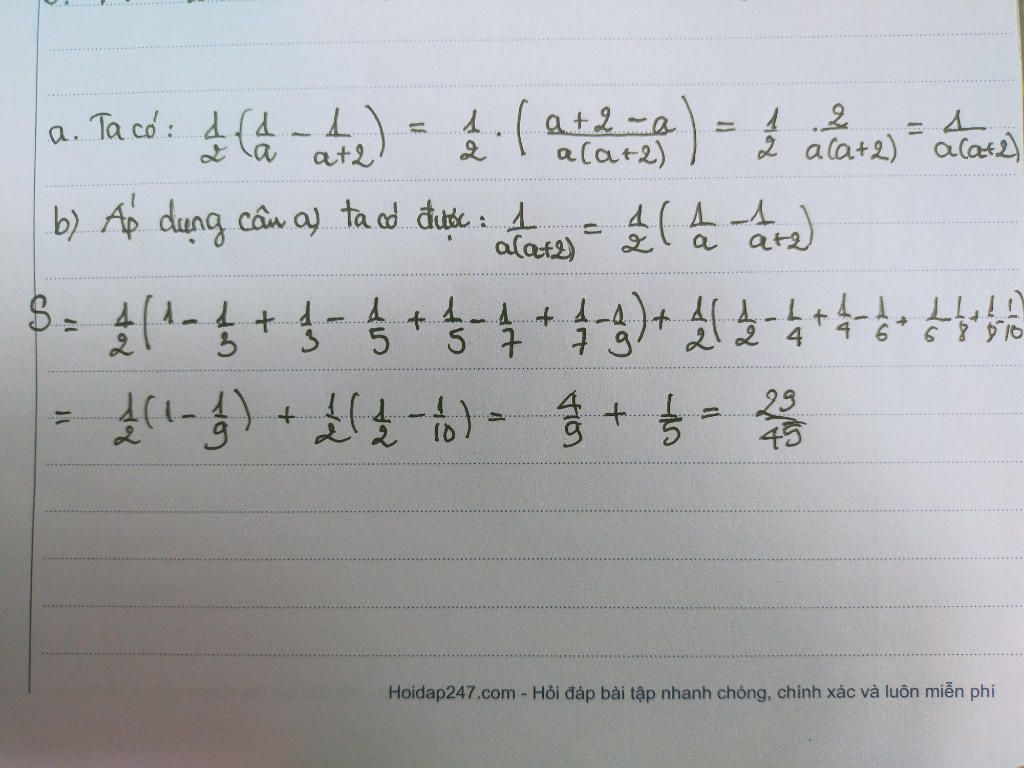 a. Ta có: 1/2 · (1/a − 1/(a+2)) = 1/2 · ((a+2−a)/(a(a+2))) = 1/2 · 2/(a(a+2)) = 1/(a(a+2))
b) Áp dụng câu a) ta có được: 1/(a(a+2)) = 1/2 (1/a − 1/(a+2))
S = 1/2 (1 − 1/3 + 1/3 − 1/5 + 1/5 − 1/7 + 1/7 − 1/9) + 1/2 (1/2 − 1/4 + 1/4 − 1/6 + 1/6 1/8 + 1/10)
= 1/2 (1 − 1/9) + 1/2 (1/2 − 1/10) = 4/9 + 1/5 = 29/45
Hoidap247.com - Hỏi đáp bài tập nhanh chóng, chính xác và luôn miễn phí